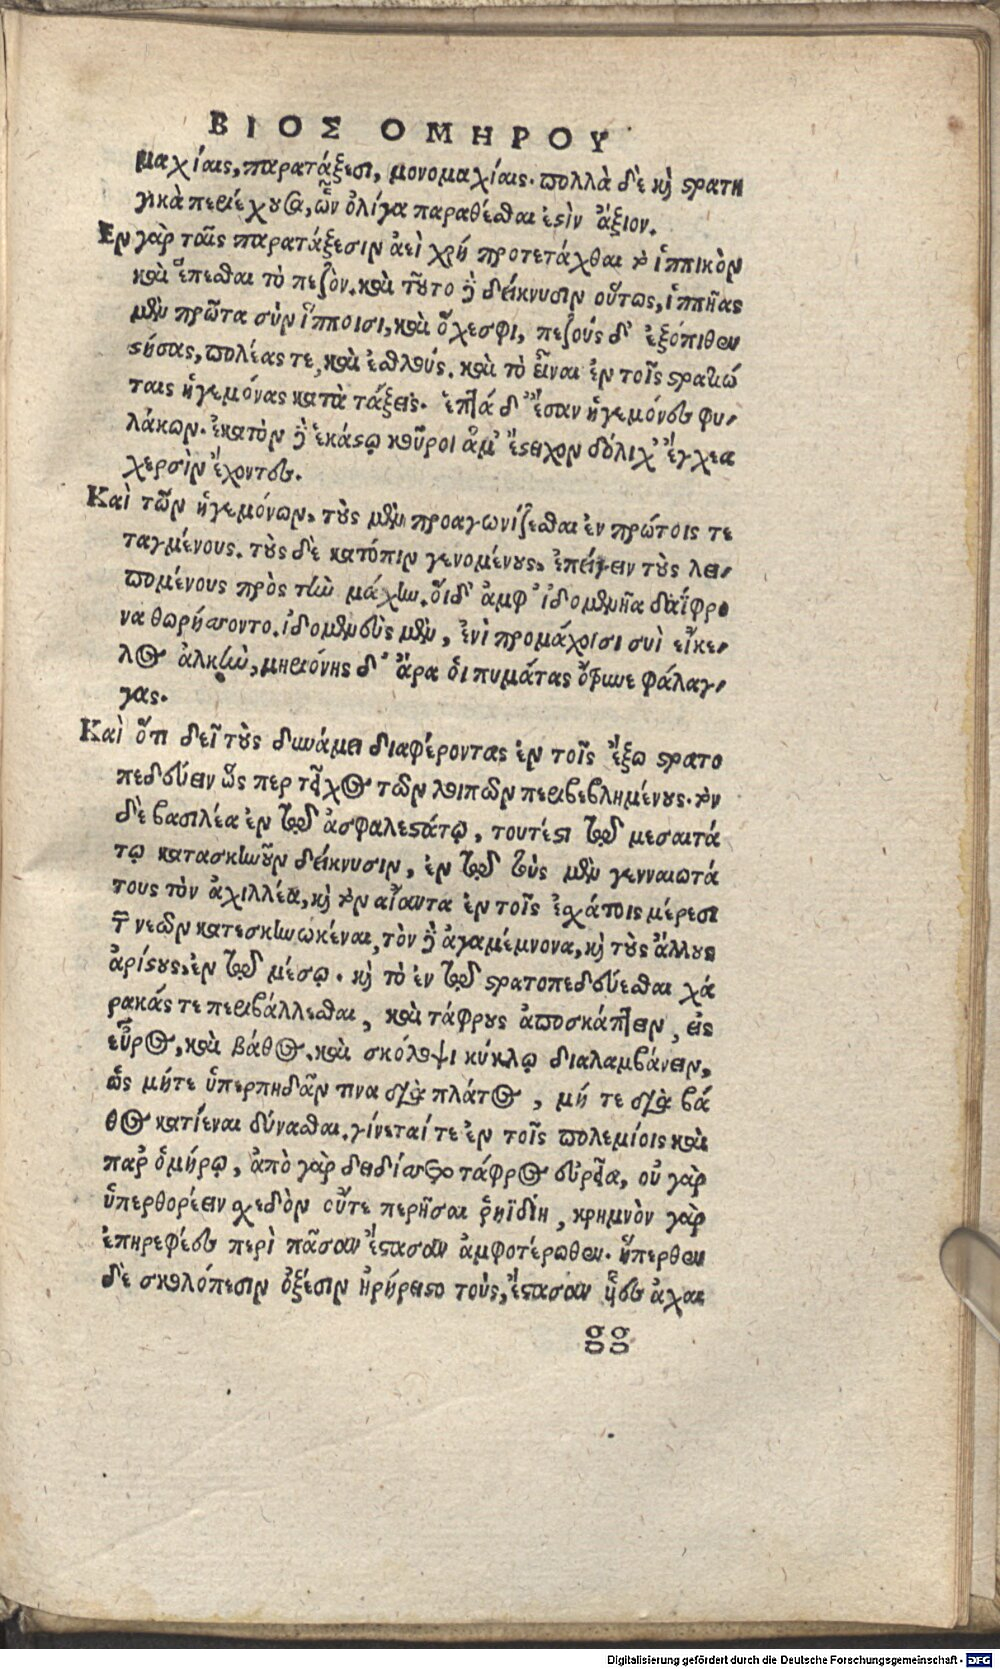 ΒΙΟΣ ΟΜΗΡΟΥ
μαχίαις, παρατάξεσι, μονομαχίαις. πολλὰ δὲ καὶ στρατη
γικὰ περιέχουσα, ὧν ὀλίγα παραθέσθαι ἐστὶν ἄξιον.
Ἐν γὰρ ταῖς παρατάξεσιν ἀεὶ χρὴ προτετάχθαι τὸ ἱππικὸν
καὶ ἕπεσθαι τὸ πεζόν. καὶ τοῦτο δὲ δείκνυσιν οὕτως, ἱππῆας
μὲν πρῶτα σὺν ἵπποισι, καὶ ὄχεσφι, πεζοὺς δ' ἐξόπιθεν
στήσας, πολέας τε, καὶ ἐσθλούς. καὶ τὸ εἶναι ἐν τοῖς στρατιώ
ταις ἡγεμόνας κατὰ τάξεις. ἑπτά δ' ἔσαν ἡγεμόνες φυ-
λάκων. ἑκατὸν δὲ ἑκάστῳ κοῦροι ἅμ' ἔστειχον δόλιχ' ἔγχεα
χερσὶν ἔχοντες.
Καὶ τῶν ἡγεμόνων, τοὺς μὲν προαγωνίζεσθαι ἐν πρώτοις τε
ταγμένους. τοὺς δὲ κατόπιν γενομένους, ἐπείγειν τοὺς λει-
πομένους πρὸς τὴν μάχην. οἵδ' ἀμφ' ἰδομενῆα δαΐφρο
να θωρήσσοντο. ἰδομενεὺς μὲν, ἐνὶ προμάχοισι συὶ εἴκε-
λος ἀλκὴν, μηριόνης δ' ἄρα οἱ πυμάτας ὄτρυνε φάλαγ-
γας.
Καὶ ὅτι δεῖ τοὺς δυνάμει διαφέροντας ἐν τοῖς ἔξω στρατο
πεδεύειν ὥς περ τεῖχος τῶν λοιπῶν περιβεβλημένους. τὸν
δὲ βασιλέα ἐν τῷ ἀσφαλεστάτῳ, τουτέστι τῷ μεσαιτά
τῳ κατασκηνοῦν δείκνυσιν, ἐν τῷ τοὺς μὲν γενναιοτά
τους τὸν ἀχιλλέα, καὶ τὸν αἴαντα ἐν τοῖς ἐσχάτοις μέρεσι
τῶν νεῶν κατεσκηνωκέναι, τὸν δὲ ἀγαμέμνονα, καὶ τοὺς ἄλλους
ἀρίστους, ἐν τῷ μέσῳ. καὶ τὸ ἐν τῷ στρατοπεδεύεσθαι χά
ρακάς τε περιβάλλεσθαι, καὶ τάφρους ἀποσκάπτειν, εἰς
εὖρος, καὶ βάθος. καὶ σκόλοψι κύκλῳ διαλαμβάνειν,
ὡς μήτε ὑπερπηδᾶν τινα διὰ πλάτος, μή τε διὰ βά
θος κατιέναι δύνασθαι. γίνεταί τε ἐν τοῖς πολεμίοις καὶ
παρ' ὁμήρῳ, ἀπὸ γὰρ δειδίσσετο τάφρος εὐρεῖα, οὐ γὰρ
ὑπερθορέειν σχεδὸν οὔτε περῆσαι ῥηϊδίη, κρημνὸν γὰρ
ἐπηρεφέες περὶ πᾶσαν ἔστασαν ἀμφοτέρωθεν. ὕπερθεν
δὲ σκολόπεσιν ὀξέσιν ἠρήρειστο τοὺς, ἔστασαν ἧες ἀχαι
gg
Digitalisierung gefördert durch die Deutsche Forschungsgemeinschaft - DFG